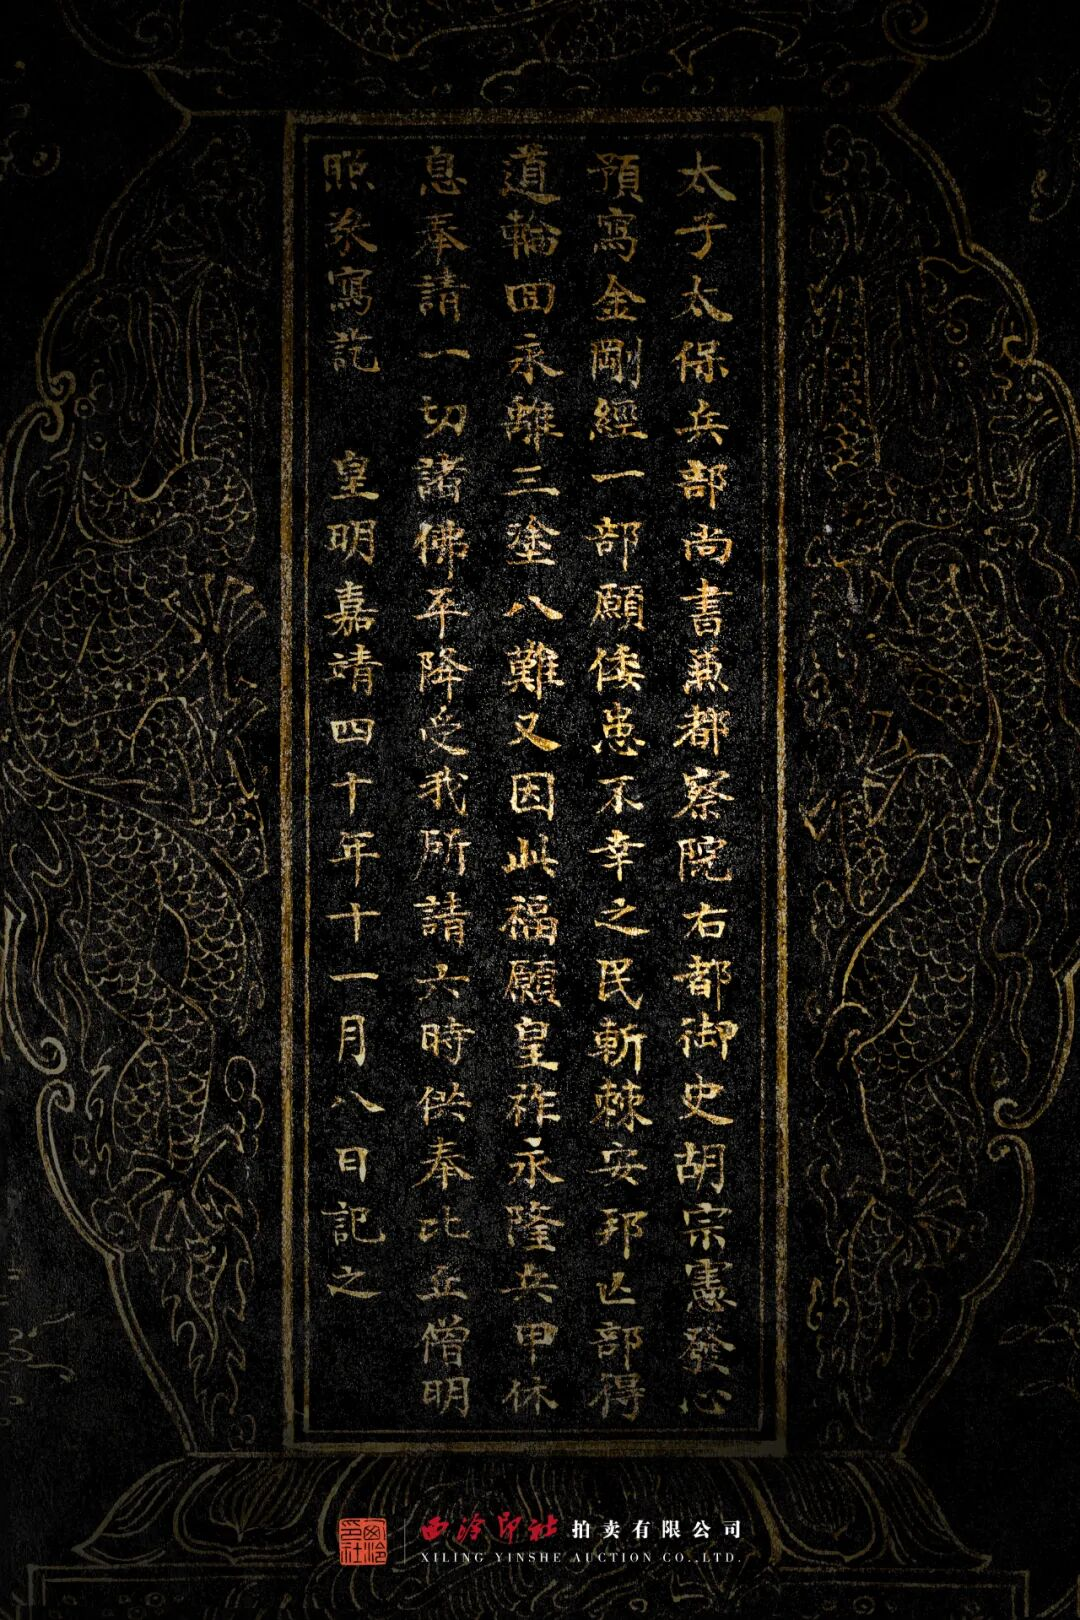 太子太保兵部尚書兼都察院右都御史胡宗憲發心
預寫金剛經一部願倭患不幸之民斬棘安邦亡部得
道輪回永離三塗八難又因此福願皇祚永隆兵甲休
息奉請一切諸佛平降受我所請六時供奉比丘僧明
照丞寫訖 皇明嘉靖四十年十一月八日記之
西泠印社
西泠印社 拍卖有限公司
XILING YINSHE AUCTION CO.,LTD.